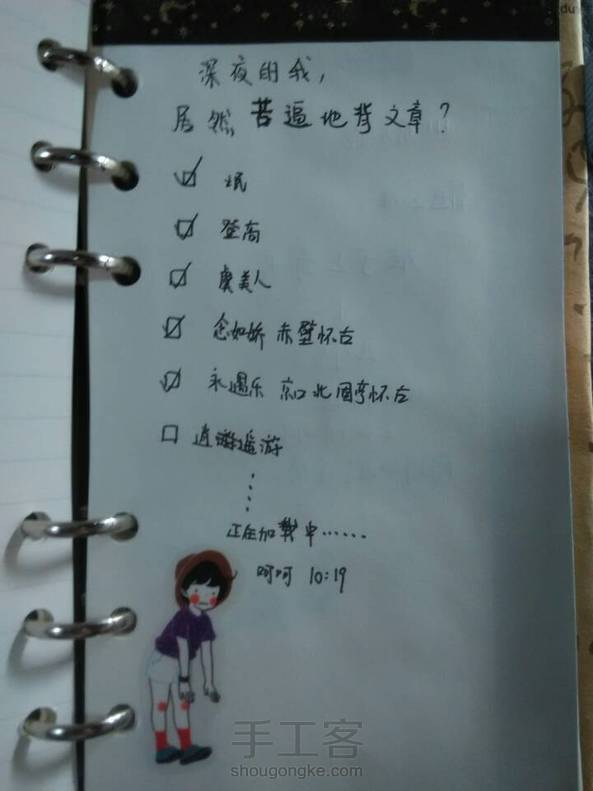 du
深夜的我，
居然苦逼地背文章？
氓
登高
虞美人
念如娇 赤壁怀古
永遇乐 京口北固亭怀古
逍游遥游
正在加载中……
呵呵 10:19
手工客
shougongke.com